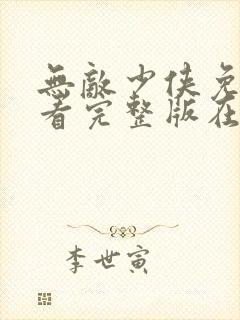 無敵少俠免
看完整版在
李世寅